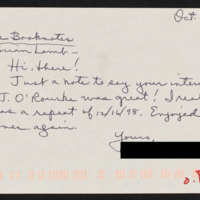 Oct.
Booknotes
Lamb -
Hi, there!
Just a note to say your inter
J. O'Rourke was great! I real
as a repeat of 12/16/98. Enjoyed
over again.
Yours,